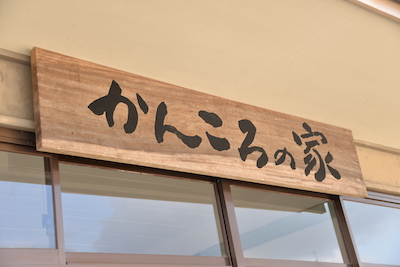 かんころの家